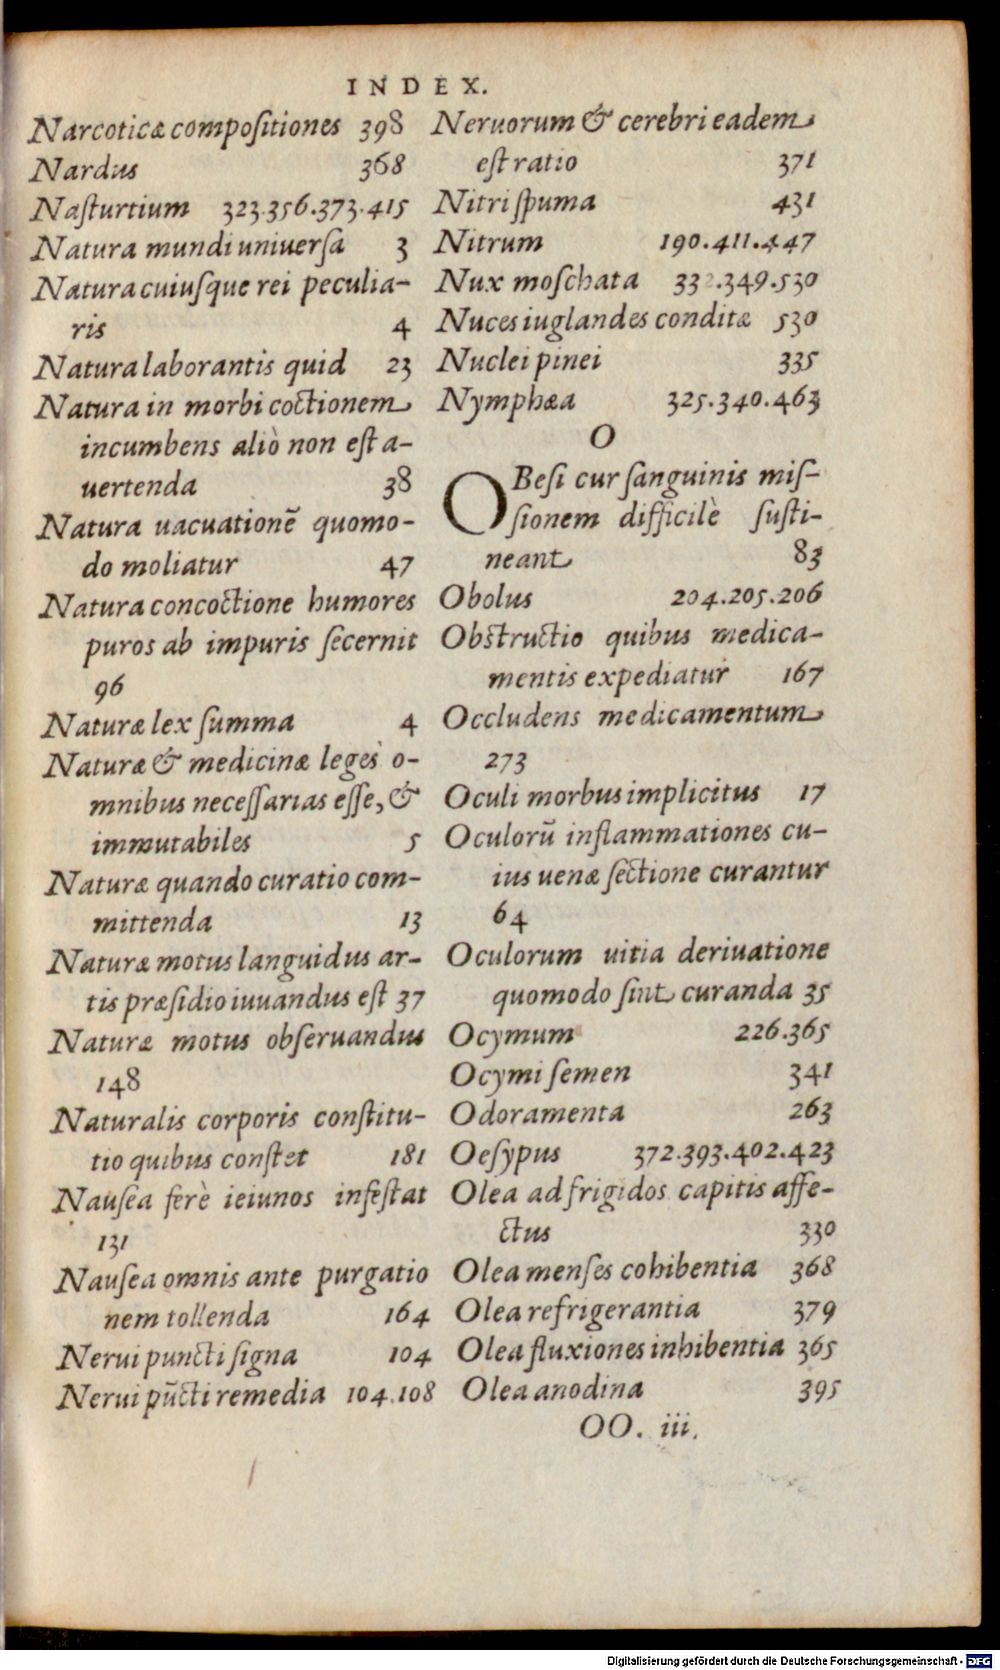 INDEX.
Narcoticæ compoſitiones 398
Nardus 368
Naſturtium 323.356.373.415
Natura mundi uniuerſa 3
Natura cuiuſque rei peculia-
ris 4
Natura laborantis quid 23
Natura in morbi coctionem
incumbens aliò non eſt a-
uertenda 38
Natura uacuationē quomo-
do moliatur 47
Natura concoctione humores
puros ab impuris ſecernit
96
Naturæ lex ſumma 4
Naturæ & medicinæ leges o-
mnibus neceſſarias eſſe, &
immutabiles 5
Naturæ quando curatio com-
mittenda 13
Naturæ motus languidus ar-
tis præſidio iuuandus eſt 37
Naturæ motus obſeruandus
148
Naturalis corporis conſtitu-
tio quibus conſtet 181
Nauſea ferè ieiunos infeſtat
131
Nauſea omnis ante purgatio
nem tollenda 164
Nerui puncti ſigna 104
Nerui pūcti remedia 104.108
Neruorum & cerebri eadem
eſt ratio 371
Nitri ſpuma 431
Nitrum 190.411.447
Nux moſchata 332.349.530
Nuces iuglandes conditæ 530
Nuclei pinei 335
Nymphæa 325.340.463
O
OBeſi cur ſanguinis miſ-
ſionem difficilè ſuſti-
neant 83
Obolus 204.205.206
Obſtructio quibus medica-
mentis expediatur 167
Occludens medicamentum
273
Oculi morbus implicitus 17
Oculorū inflammationes cu-
ius uenæ ſectione curantur
64
Oculorum uitia deriuatione
quomodo ſint curanda 35
Ocymum 226.365
Ocymi ſemen 341
Odoramenta 263
Oeſypus 372.393.402.423
Olea ad frigidos capitis affe-
ctus 330
Olea menſes cohibentia 368
Olea refrigerantia 379
Olea fluxiones inhibentia 365
Olea anodina 395
OO. iii.
Digitalisierung gefördert durch die Deutsche Forschungsgemeinschaft - DFG